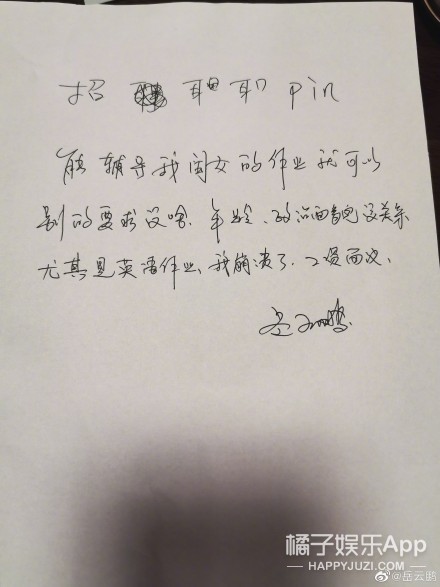 招 pin
能辅导我闺女的作业就可以
别的要求没啥.年龄、政治面貌没关系
尤其是英语作业、我崩溃了.工资面议.
岳云鹏.
橘子娱乐App
HAPPYJUZI.COM
@岳云鹏